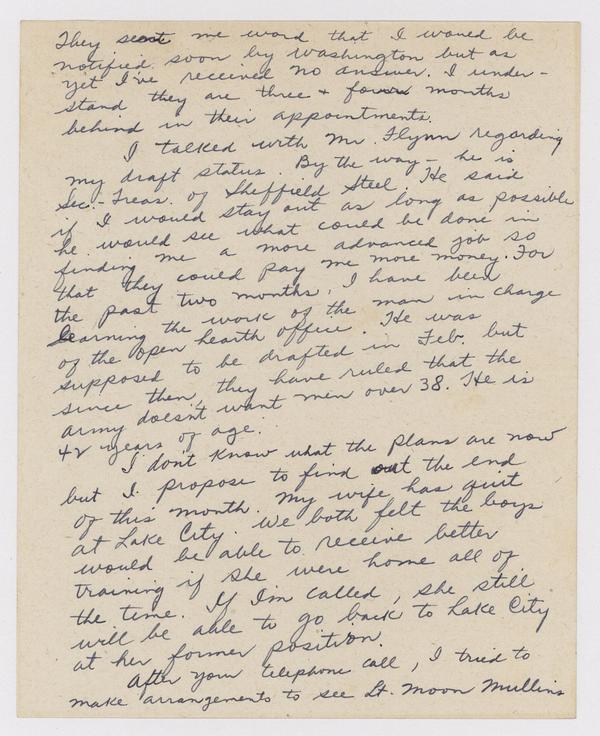 They sent me word that I would be
notified soon by Washington but as
yet I've received no answer. I under-
stand they are three + four months
behind in their appointments.
I talked with Mr. Flynn regarding
my draft status. By the way - he is
Sec.-Treas. of Sheffield Steel. He said
if I would stay out as long as possible
he would see what could be done in
finding me a more advanced job so
that they could pay me more money. For
the past two months, I have been
learning the work of the man in charge
of the open hearth office. He was
supposed to be drafted in Feb. but
since then, they have ruled that the
army doesn't want men over 38. He is
42 years of age.
I don't know what the plans are now
but I propose to find out the end
of this month. My wife has quit
at Lake City. We both felt the boys
would be able to receive better
training if she were home all of
the time. If I'm called, she still
will be able to go back to Lake City
at her former position.
After your telephone call, I tried to
make arrangements to see Lt. Moon Mullins